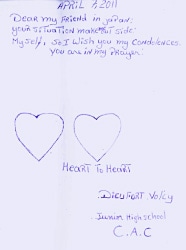 APRIL 7, 2011
Dear my Friend in japan:
your situation make me side.
Myself, so I wish you my Condolences.
You are in my Prayer.
Heart To Heart
Dieufort Volcy
Junior High school
C.A.C